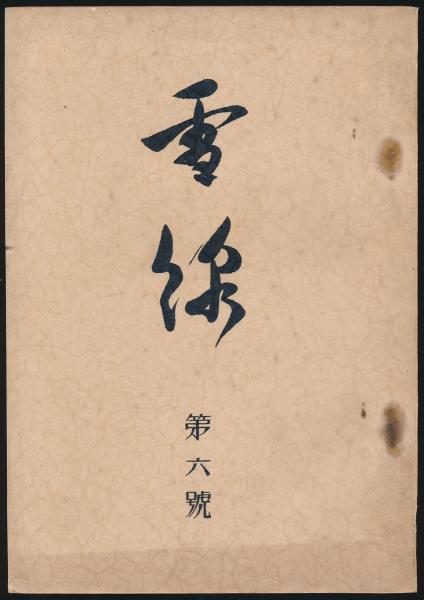 雪線
第六號